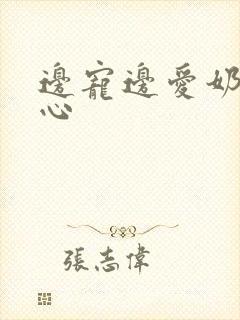 邊寵邊愛奶
心
張志偉